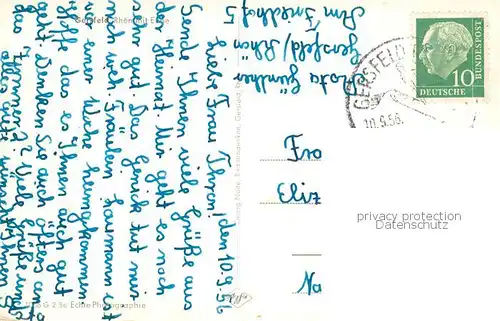 Gersfeld Rhön mit Eube
Liebe Frau Thron! den 10.9.56
Sende Ihnen viele Grüße aus
der Heimat. Mir geht es noch
sehr gut. Das Genick tut mir
noch weh, Fräulein Baumann ist
vor einer Woche heimgekommen.
Hoffe das es Ihnen auch gut
geht. Denken Sie auch öfters an
das Zimmer 2? Viele Grüße und
alles gute wünscht Ihnen
G 2 56 Echte Photographie
Rosita Günther
Gersfeld/Rhön
Am Friedhof 5
GERSFELD
10.9.56.
10
DEUTSCHE
BUNDESPOST
Fra
Eliz
Na
privacy protection
Datenschutz